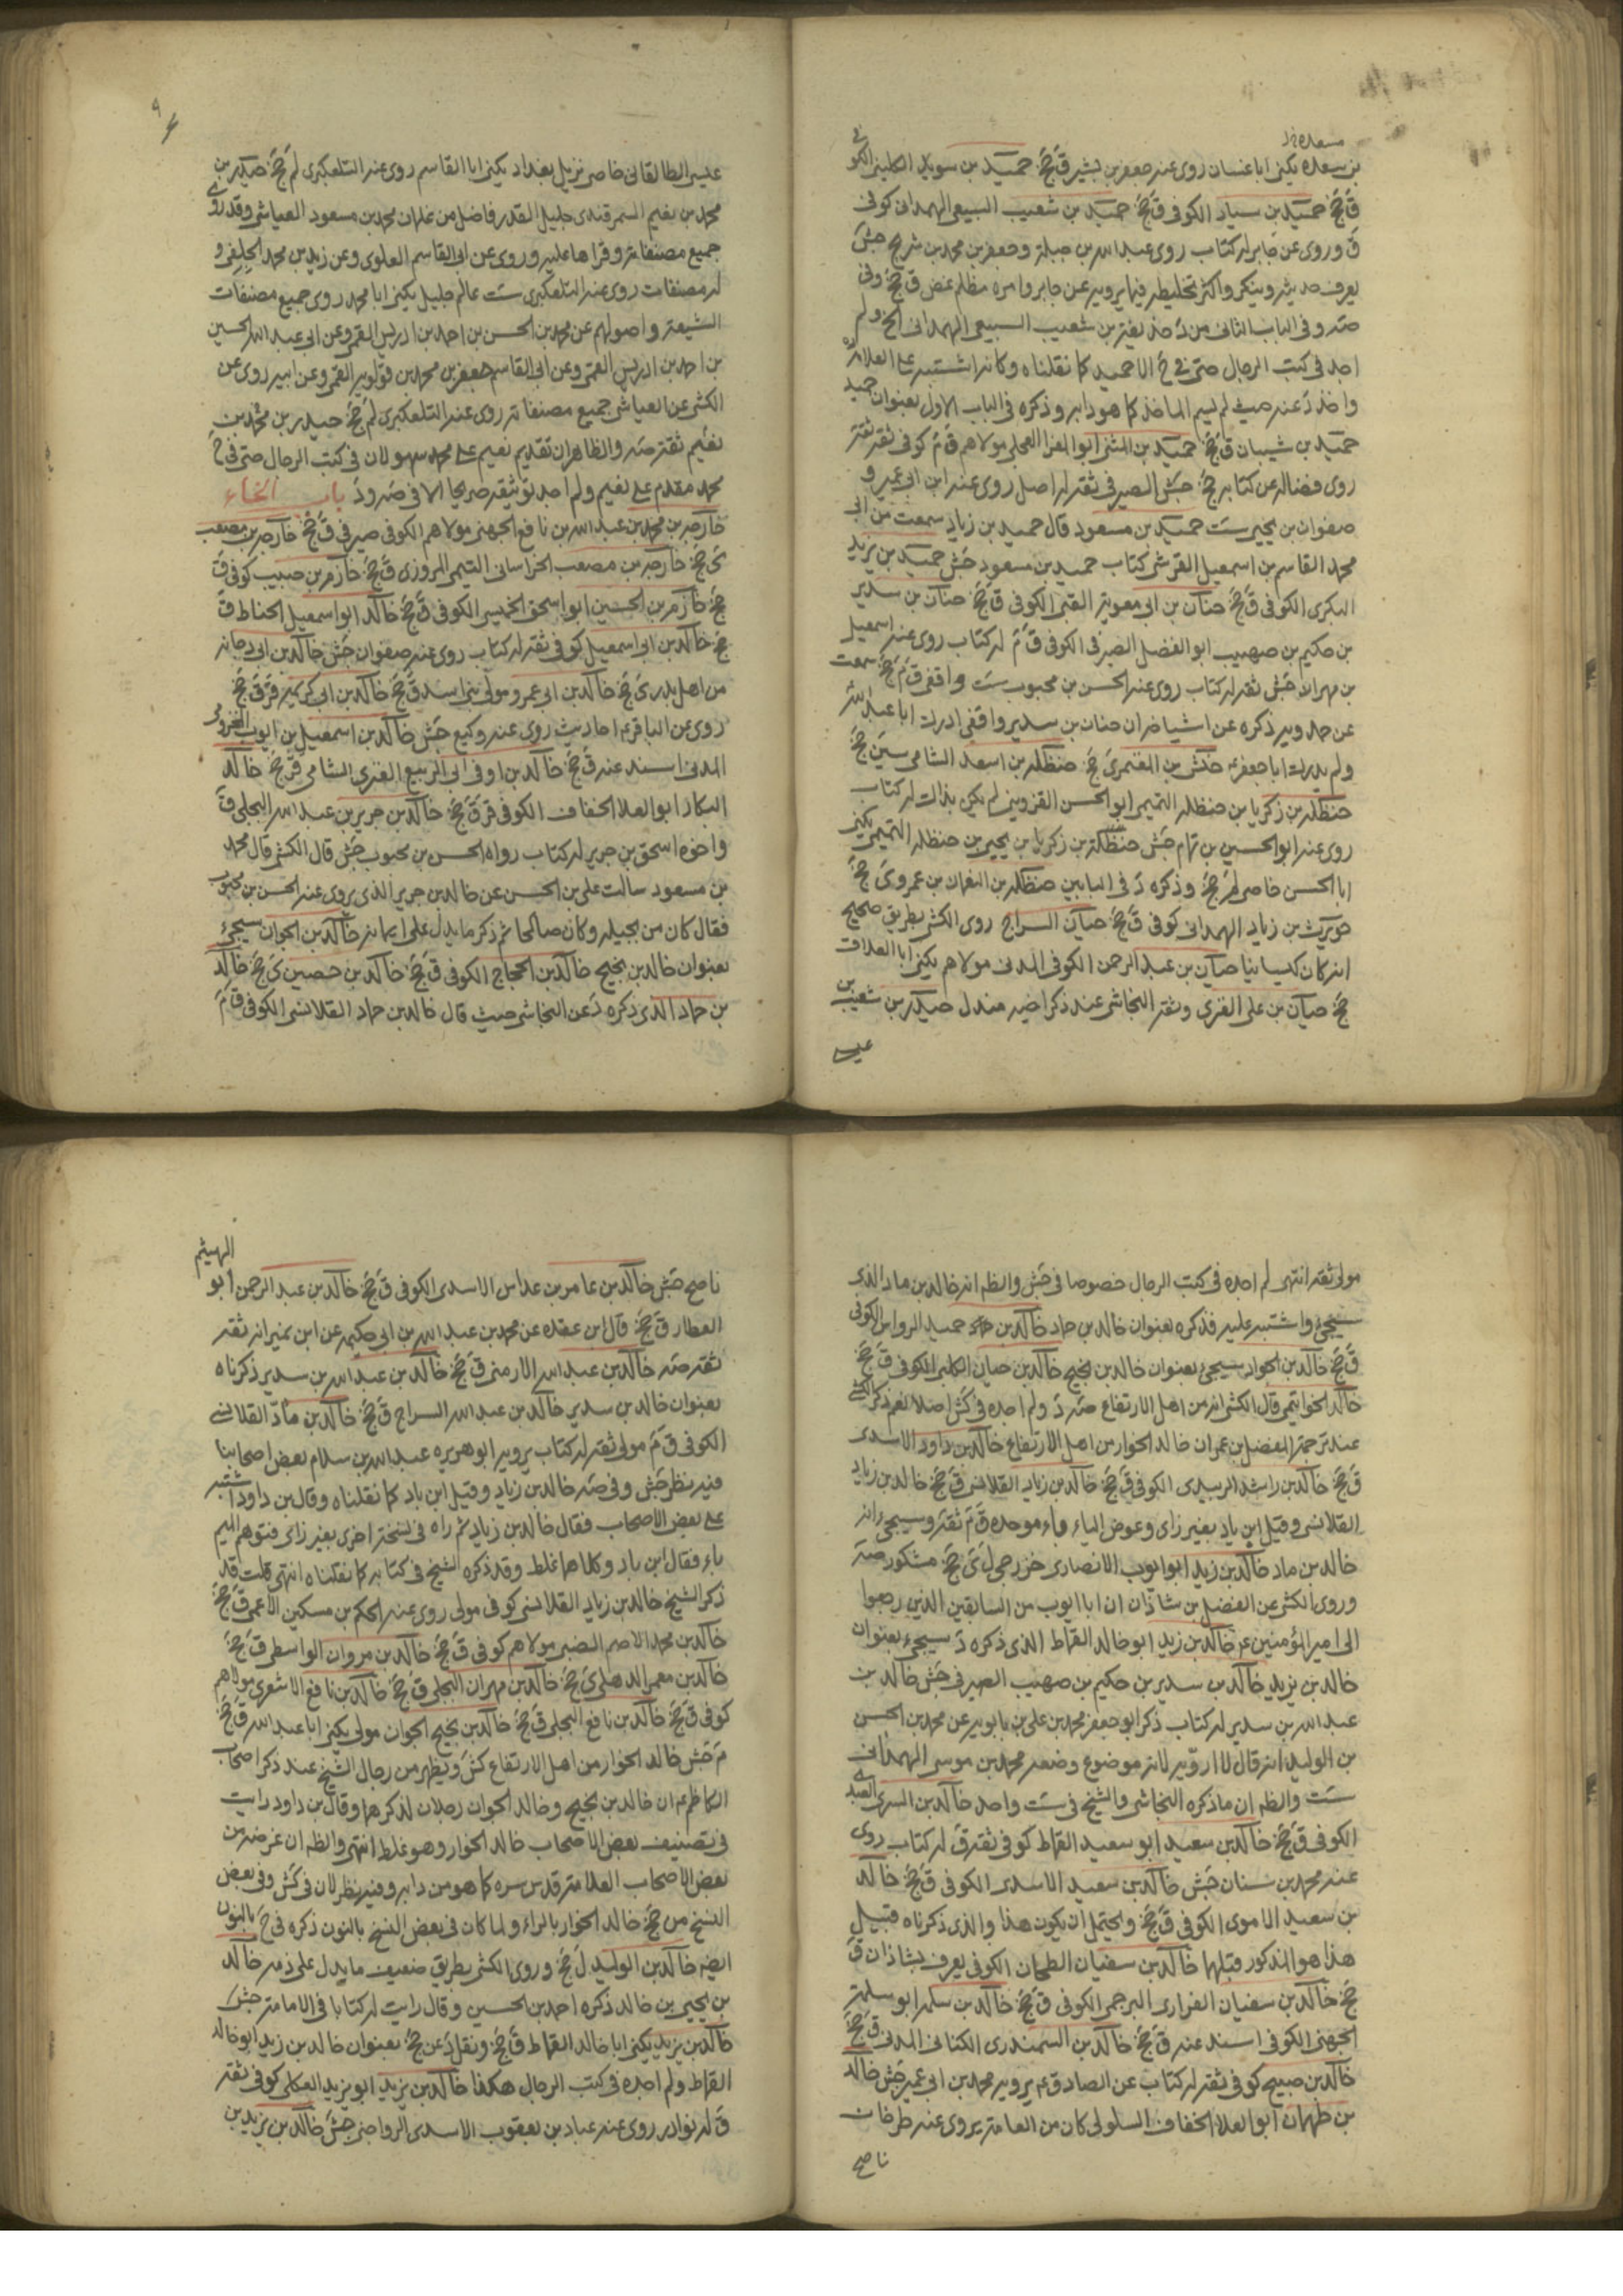 مسعده خ‌ل
بن سعده يكنى ابا غسان روى عنه جعفر بن بشير ق جخ حميد بن سويد الكلبى الكو
فى
ق جخ حميد بن سيار الكوفى ق جخ حميد بن شعيب السبيعى الهمدانى كوفى
ق وروى عن جابر له كتاب روى عبد الله بن جبلة وجعفر بن محمد بن شريح جش
يعرف حديثه وينكر واكثر تخليطه فيما يرويه عن جابر وامره مظلم غض ق جخ وفى
صه وفى الباب الثانى من د حذيفة بن شعيب السبيعى الهمدانى الخ ولم
اجد فى كتب الرجال حتى فى خ الا حميد كما نقلناه وكانه اشتبه على العلامه
واخذ د عنه حيث لم يسم الماخذ كما هو دابه وذكره فى الباب الاول بعنوان حميد
حميد بن شيبان ق جخ حميد بن المثنى ابو المغرا العجلى مولاهم ق م كوفى ثقة ثقة
روى فضاله عن كتابه جخ جش الصيرفى ثقة له اصل روى عنه ابن ابى عمير و
صفوان بن يحيى ست حميد بن مسعود قال حميد بن زياد سمعت من ابى
محمد القاسم بن اسمعيل القرشى كتاب حميد بن مسعود جش حميد بن يزيد
البكرى الكوفى ق جخ حنان بن ابى معوية القبى الكوفى ق جخ حنان بن سدير
بن حكيم بن صهيب ابو الفضل الصيرفى الكوفى ق م له كتاب روى عنه اسمعيل
بن مهران جش ثقة له كتاب روى عنه الحسن بن محبوب ست واقفى ق م جخ سمعت
عن حمدويه ذكره عن اشياخه ان حنان بن سدير واقفى ادرك ابا عبد الله
ولم يدرك ابا جعفر ع حنش بن المعتمر ى جخ حنظلة بن اسعد الشامى سين جخ
حنظلة بن زكريا بن حنظلة التميمى ابو الحسن القزوينى لم يكن بذاك له كتاب
روى عنه ابو الحسين بن تمام جش حنظلة بن زكريا بن يحيى بن حنظلة التميمى يكنى
ابا الحسن خاصى لم جخ وذكره د فى البابين حنظلة بن النعمان بن عمرو ى جخ
حويرث بن زياد الهمدانى كوفى ق جخ حيان السراج روى الكشى بطريق صحيح
انه كان كيسانيا حيان بن عبد الرحمن الكوفى المدنى مولاهم يكنى ابا العلا ق
جخ حيان بن على العنزى وثقه النجاشى عند ذكر اخيه مندل حيدر بن شعيب بن
عيسى
عيسى الطالقانى خاصى نزيل بغداد يكنى ابا القاسم روى عنه التلعكبرى لم جخ حيدر بن
محمد بن نعيم السمرقندى جليل القدر فاضل من غلمان محمد بن مسعود العياشى وقد روى
جميع مصنفاته وقراها عليه وروى عن ابى القاسم العلوى وعن زيد بن محمد الحلقى و
له مصنفات روى عنه التلعكبرى ست عالم جليل يكنى ابا محمد روى جميع مصنفات
الشيعة واصولهم عن محمد بن الحسن بن احمد بن ادريس القمى وعن ابى عبد الله الحسين
بن احمد بن ادريس القمى وعن ابى القاسم جعفر بن محمد بن قولويه القمى وعن ابيه روى عن
الكشى عن العياشى جميع مصنفاته روى عنه التلعكبرى لم جخ حيدر بن محمد بن
نعيم ثقة صه والظاهر ان تقديم نعيم على محمد سهو لان فى كتب الرجال حتى فى خ
محمد مقدم على نعيم ولم اجد توثيقه صريحا الا فى صه ود باب الخاء
خارجة بن محمد بن عبد الله بن نافع الجهنى مولاهم الكوفى صيرفى ق جخ خارجة بن مصعب
ى جخ خارجة بن مصعب الخراسانى التيمى المروزى ق جخ خازم بن حبيب كوفى ق
جخ خازم بن الحسين ابو اسحق الخميسى الكوفى ق جخ خالد ابو اسمعيل الحناط ق
جخ خالد بن ابى اسمعيل كوفى ثقة له كتاب روى عنه صفوان جش خالد بن ابى دجانه
من اهل بدر ى جخ خالد بن ابى عمرو مولى بنى اسد ق جخ خالد بن ابى كريمة قر ق جخ
روى عن الباقر ع احاديث روى عنه وكيع جش خالد بن اسمعيل بن ايوب المخزومى
المدنى اسند عنه ق جخ خالد بن اوفى ابى الربيع العنزى الشامى قر جخ خالد
البكار ابو العلا الخفاف الكوفى قر ق جخ خالد بن جرير بن عبد الله البجلى ق
واخوه اسحق بن جرير له كتاب رواه الحسن بن محبوب جش قال الكشى قال محمد
بن مسعود سالت على بن الحسن عن خالد بن جرير الذى يروى عنه الحسن بن محبوب
فقال كان من بجيلة وكان صالحا ثم ذكر ما يدل على ايمانه خالد بن الجوان سيجئ
بعنوان خالد بن نجيح خالد بن الحجاج الكوفى ق جخ خالد بن حصين ى جخ خالد
بن حماد الذى ذكره د عن النجاشى حيث قال خالد بن حماد القلانسى الكوفى ق م
مولى ثقة انتهى لم اجده فى كتب الرجال خصوصا فى جش والظ انه خالد بن ماد الذى
سيجئ واشتبه عليه فذكره بعنوان خالد بن حماد خالد بن حميد الرواس الكوفى
ق جخ خالد بن الجواد سيجئ بعنوان خالد بن نجيح خالد بن حيان الكلبى الكوفى ق جخ
خالد الخواتيمى قال الكشى انه من اهل الارتفاع صه د ولم اجده فى كش اصلا نعم ذكر الكشى
عند ترجمة المفضل بن عمران خالد الجوار من اهل الارتفاع خالد بن داود الاسدى
ق جخ خالد بن راشد الزبيدى الكوفى ق جخ خالد بن زياد القلانسى ق جخ خالد بن زياد
القلانسى وقيل ابن باد بغير زاى وعوض الياء باء موحده ق م ثقة وسيجئ انه
خالد بن ماد خالد بن زيد ابو ايوب الانصارى خزرجى ل ى جخ مشكور صه
وروى الكشى عن الفضل بن شاذان ان ابا ايوب من السابقين الذين رجعوا
الى امير المؤمنين ع خالد بن زيد ابو خالد القماط الذى ذكره د سيجئ بعنوان
خالد بن يزيد خالد بن سدير بن حكيم بن صهيب الصيرفى جش خالد بن
عبد الله بن سدير له كتاب ذكر ابو جعفر محمد بن على بن بابويه عن محمد بن الحسن
بن الوليد انه قال لا ارويه لانه موضوع وضعه محمد بن موسى الهمدانى
ست والظ ان ما ذكره النجاشى والشيخ فى ست واحد خالد بن السرى العبدى
الكوفى ق جخ خالد بن سعيد ابو سعيد القماط كوفى ثقة ق له كتاب روى
عنه محمد بن سنان جش خالد بن سعيد الاسدى الكوفى ق جخ خالد
بن سعيد الاموى الكوفى ق جخ ويحتمل ان يكون هذا والذى ذكرناه قبيل
هذا هو المذكور قبلهما خالد بن سفيان الطحان الكوفى يعرف بشاذان ق
جخ خالد بن سفيان الفزارى البرجمى الكوفى ق جخ خالد بن سلمه ابو سلمة
الجهنى الكوفى اسند عنه ق جخ خالد بن السمندرى الكنانى المدنى ق جخ
خالد بن صبيح كوفى ثقة له كتاب عن الصادق ع يرويه محمد بن ابى عمير جش خالد
بن طهمان ابو العلا الخفاف السلولى كان من العامة يروى عنه
ناصح
الهيثم
ناصح جش خالد بن عامر بن عداس الاسدى الكوفى ق جخ خالد بن عبد الرحمن ابو
العطار ق جخ قال ابن عقده عن محمد بن عبد الله بن ابى حكيمه عن ابن نمير انه ثقة
ثقة صه خالد بن عبد الله الارمنى ق جخ خالد بن عبد الله بن سدير ذكرناه
بعنوان خالد بن سدير خالد بن عبد الله السراج ق جخ خالد بن ماد القلانسى
الكوفى ق م مولى ثقة له كتاب يرويه ابو هريره عبد الله بن سلام بعض اصحابنا
فيه نظر جش وفى صه خالد بن زياد وقيل ابن باد كما نقلناه وقال بن داود اشتبه
على بعض الاصحاب فقال خالد بن زياد ثم راه فى نسخة اخرى بغير زاى فتوهم الميم
باء فقال ابن باد وكلاهما غلط وقد ذكره الشيخ فى كتابه كما نقلناه انتهى قلت قد
ذكر الشيخ خالد بن زياد القلانسى كوفى مولى روى عنه الحكم بن مسكين الاعمى ق جخ
خالد بن محمد الاصم الضبى مولاهم كوفى ق جخ خالد بن مروان الواسطى ق جخ
خالد بن معمر الدهلى ى جخ خالد بن مهران البجلى ق جخ خالد بن نافع الاشعرى مولاهم
كوفى ق جخ خالد بن نافع البجلى ق جخ خالد بن نجيح الجوان مولى يكنى ابا عبد الله ق جخ
م جش خالد الجوار من اهل الارتفاع كش ويظهر من رجال الشيخ عند ذكر اصحاب
الكاظم ع ان خالد بن نجيح وخالد الجوان رجلان لذكرهما وقال بن داود رايت
فى تصنيف بعض الاصحاب خالد الجوار وهو غلط انتهى والظ ان غرضه من
بعض الاصحاب العلامة قدس سره كما هو من دابه وفيه نظر لان فى كش وفى بعض
النسخ من جخ خالد الجوار بالراء ولما كان فى بعض النسخ بالنون ذكره فى خ بالنون
ايضه خالد بن الوليد ل جخ وروى الكشى بطريق ضعيف ما يدل على ذمه خالد
بن يحيى بن خالد ذكره احمد بن الحسين وقال رايت له كتابا فى الامامة جش
خالد بن يزيد يكنى ابا خالد القماط ق جخ ونقل د عن جخ بعنوان خالد بن زيد ابو خالد
القماط ولم اجده فى كتب الرجال هكذا خالد بن يزيد ابو يزيد العكلى كوفى ثقة
ق له نوادر روى عنه عباد بن يعقوب الاسدى الرواجنى جش خالد بن يزيد بن